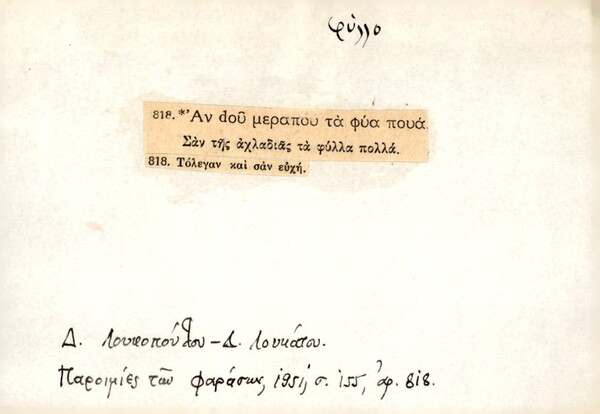 φύλλο
818. *Ἂν dοῦ μεραποῦ τὰ φύα πουά.
Σὰν τῆς ἀχλαδιᾶς τὰ φύλλα πολλά.
818. Τόλεγαν καὶ σὰν εὐχή.
Δ. Λουκοπούλου – Δ. Λουκάτου.
Παροιμίες τῶν Φαράσων, 1951, σ. 155, ἀρ. 818.